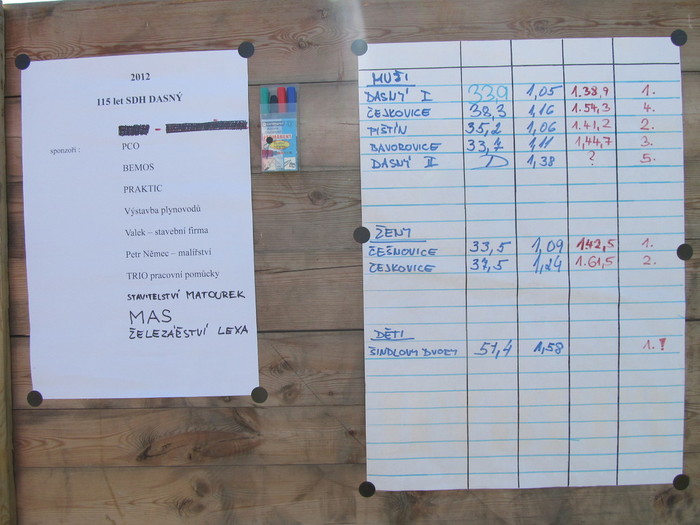 2012
115 let SDH DASNÝ
sponzoři :
PCO
BEMOS
PRAKTIC
Výstavba plynovodů
Valek – stavební firma
Petr Němec – malířství
TRIO pracovní pomůcky
STAVITELSTVÍ MATOUREK
MAS
ŽELEZÁŘSTVÍ LEXA
MUŽI
DASNÝ I 33,9 1,05 1.38,9 1.
ČEJKOVICE 38,3 1,16 1.54,3 4.
PIŠTÍN 35,2 1,06 1.41,2 2.
BAVOROVICE 33,7 1,11 1,44,7 3.
DASNÝ II D 1,38 ? 5.
ŽENY
ČEŠNOVICE 33,5 1,09 1.42,5 1.
ČEJKOVICE 37,5 1,24 1.61,5 2.
DĚTI
ŠINDLOVY DVORY 51,4 1,58 1.!